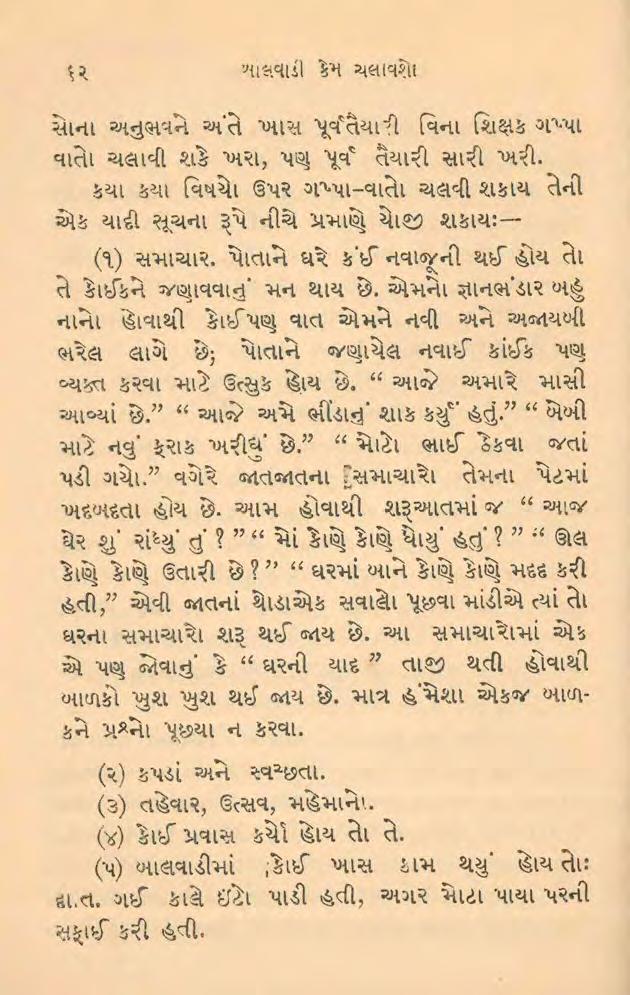 ૬૨ બાલવાડી કેમ ચલાવશો
સોના અનુભવને અંતે ખાસ પૂર્વતૈયારી વિના શિક્ષક ગપ્પા
વાતો ચલાવી શકે ખરા, પણ પૂર્વ તૈયારી સારી ખરી.
કયા કયા વિષયો ઉપર ગપ્પા-વાતો ચલવી શકાય તેની
એક યાદી સૂચના રૂપે નીચે પ્રમાણે યોજી શકાયઃ—
(૧) સમાચાર. પોતાને ઘરે કંઈ નવાજૂની થઈ હોય તો
તે કોઈકને જણાવવાનું મન થાય છે. એમનો જ્ઞાનભંડાર બહુ
નાનો હોવાથી કોઈપણ વાત એમને નવી અને અજાયબી
ભરેલ લાગે છે; પોતાને જણાયેલ નવાઈ કાંઈક પણ
વ્યક્ત કરવા માટે ઉત્સુક હોય છે. “ આજે અમારે માસી
આવ્યાં છે.” “ આજે અમે ભીંડાનું શાક કર્યું હતું.” “ બેબી
માટે નવું ફરાક ખરીધું છે.” “ મોટો ભાઈ ઠેકવા જતાં
પડી ગયો.” વગેરે જાતજાતના સમાચારો તેમના પેટમાં
ખદબદતા હોય છે. આમ હોવાથી શરૂઆતમાં જ “ આજ
ઘેર શું રાંધ્યું તું ? ” “ મોં કોણે કોણે ધોયું હતું ? ” “ ઊલ
કોણે કોણે ઉતારી છે ? ” “ ઘરમાં બાને કોણે કોણે મદદ કરી
હતી,” એવી જાતનાં થોડાએક સવાલો પૂછવા માંડીએ ત્યાં તો
ઘરના સમાચારો શરૂ થઈ જાય છે. આ સમાચારોમાં એક
એ પણ જોવાનું કે “ ઘરની યાદ ” તાજી થતી હોવાથી
બાળકો ખુશ ખુશ થઈ જાય છે. માત્ર હંમેશા એકજ બાળ-
કને પ્રશ્નો પૂછયા ન કરવા.
(૨) કપડાં અને સ્વચ્છતા.
(૩) તહેવાર, ઉત્સવ, મહેમાનો.
(૪) કોઈ પ્રવાસ કર્યો હોય તો તે.
(૫) બાલવાડીમાં કોઈ ખાસ કામ થયું હોય તોઃ
દા.ત. ગઈ કાલે ઇંટો પાડી હતી, અગર મોટા પાયા પરની
સફાઈ કરી હતી.